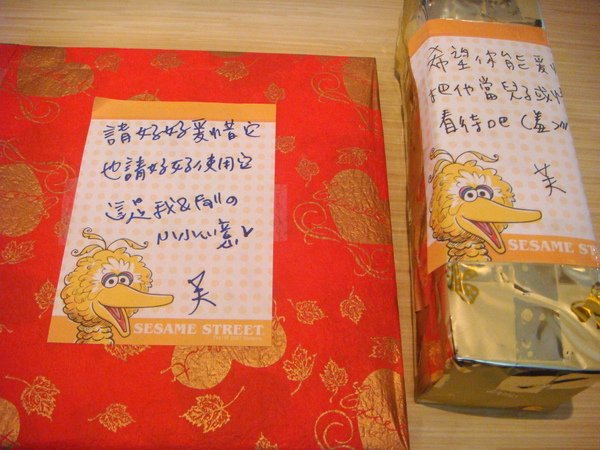 請好好愛惜它
也請好好使用它
這是我&Fallの
小小心意
芙
SESAME STREET
希望你能愛
把他當兒子或
看待吧(羞)
芙
SESAME STREET